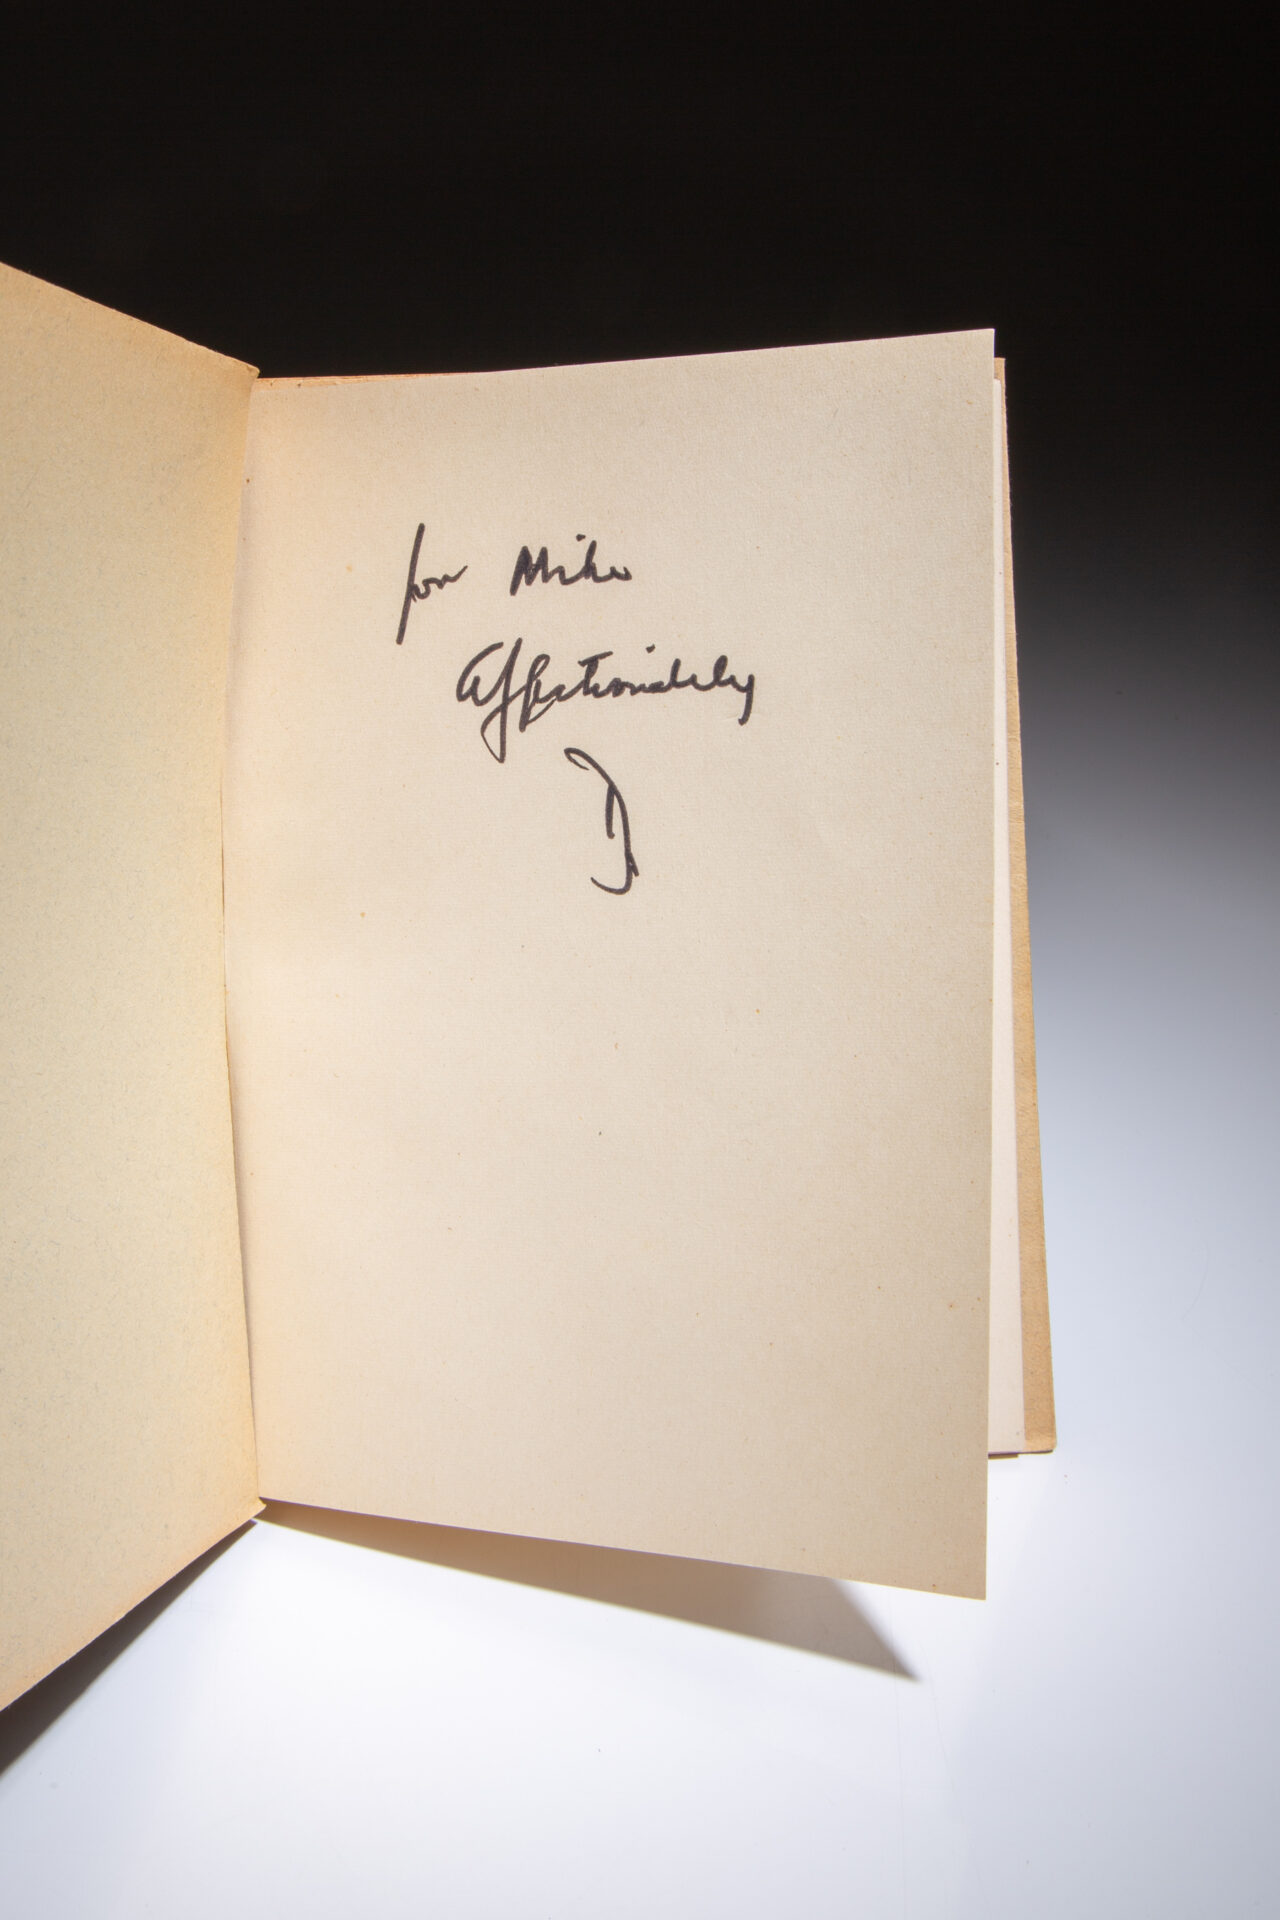 for Mike
Affectionately